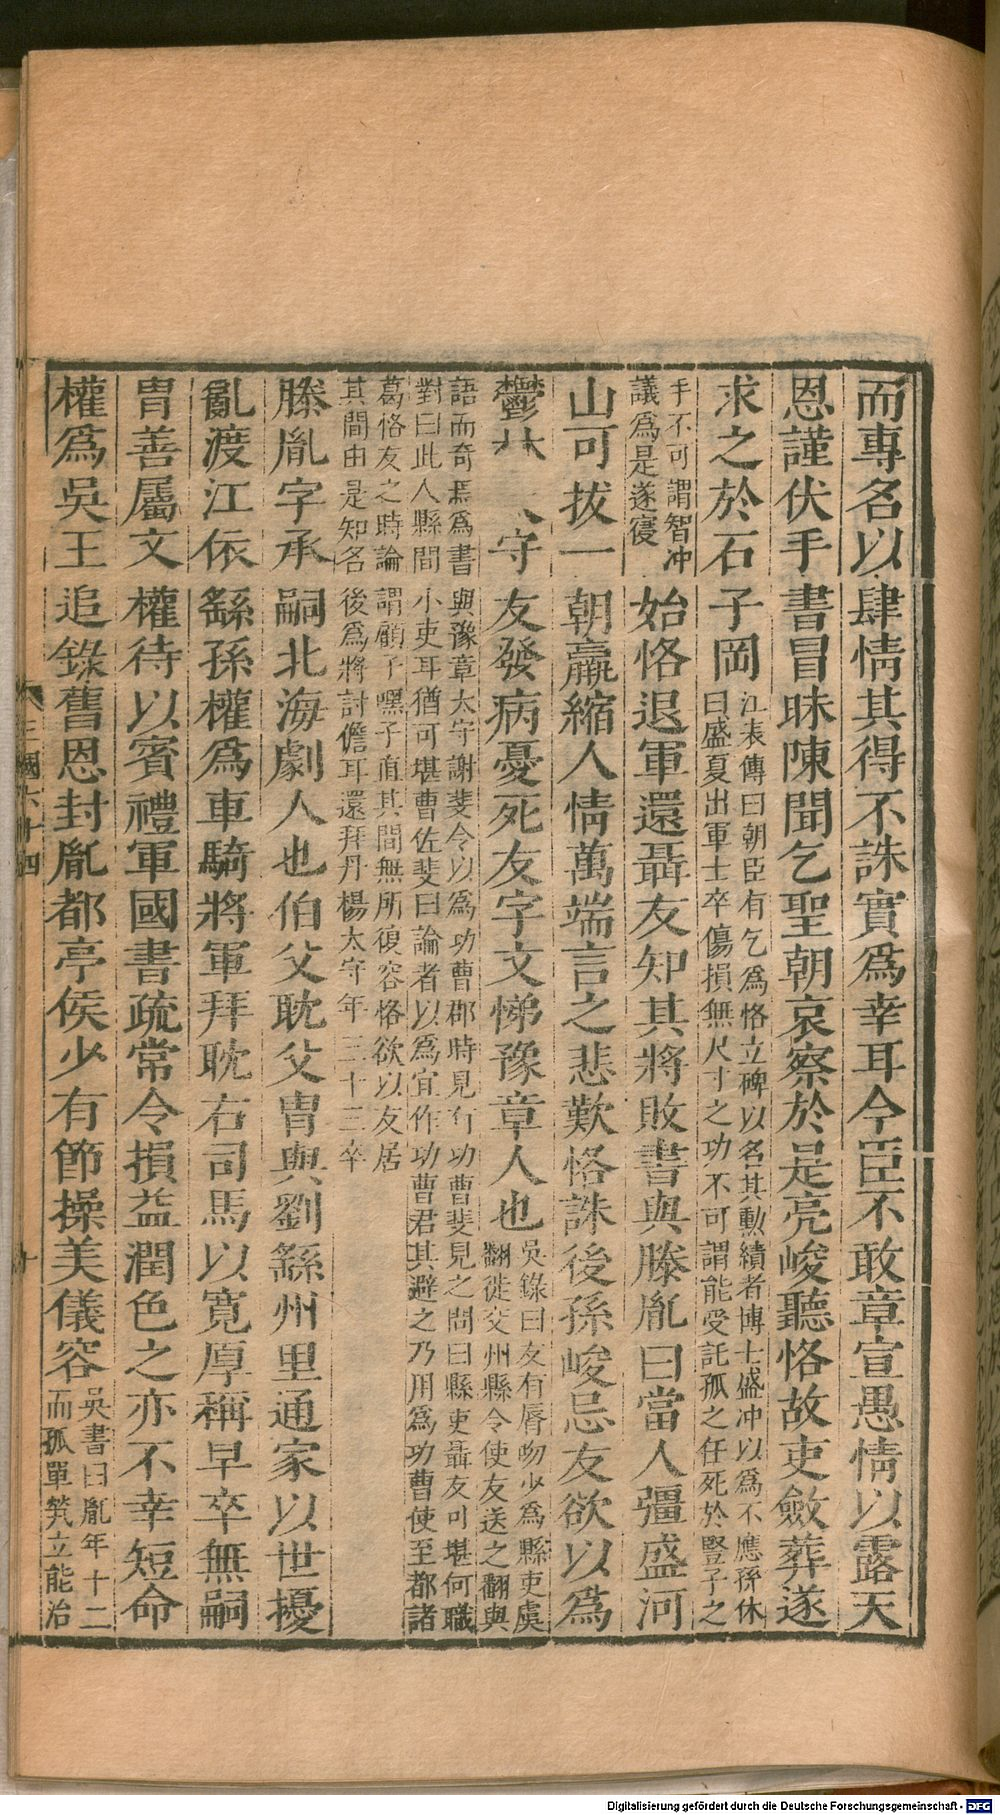 而專名以肆情其得不誅實爲幸耳今臣不敢章宣愚情以露天
恩謹伏手書冒昧陳聞乞聖朝哀察於是亮峻聽恪故吏斂葬遂
求之於石子岡
江表傳曰朝臣有乞爲恪立碑以名其勳績者博士盛冲以爲不應孫休
曰盛夏出軍士卒傷損無尺寸之功不可謂能受託孤之任死於豎子之
手不可謂智冲
議爲是遂寑
始恪退軍還聶友知其將敗書與滕胤曰當人彊盛河
山可拔一朝羸縮人情萬端言之悲歎恪誅後孫峻忌友欲以爲
鬱林守友發病憂死友字文悌豫章人也
吳錄曰友有脣吻少爲縣吏虞
翻徙交州縣令使友送之翻與
語而奇焉爲書與豫章太守謝斐令以爲功曹郡時見有功曹斐見之問曰縣吏聶友可堪何職
對曰此人縣間小吏耳猶可堪曹佐斐曰論者以爲宜作功曹君其避之乃用爲功曹使至都諸
葛恪友之時論謂顧子嘿子直其間無所復容恪欲以友居
其間由是知名後爲將討儋耳還拜丹楊太守年三十三卒
滕胤字承嗣北海劇人也伯父耽父胄與劉繇州里通家以世擾
亂渡江依繇孫權爲車騎將軍拜耽右司馬以寬厚稱早卒無嗣
胄善屬文權待以賓禮軍國書疏常令損益潤色之亦不幸短命
權爲吳王追錄舊恩封胤都亭侯少有節操美儀容
吳書曰胤年十二
而孤單煢立能治
三國六十四
十
Digitalisierung gefördert durch die Deutsche Forschungsgemeinschaft - DFG